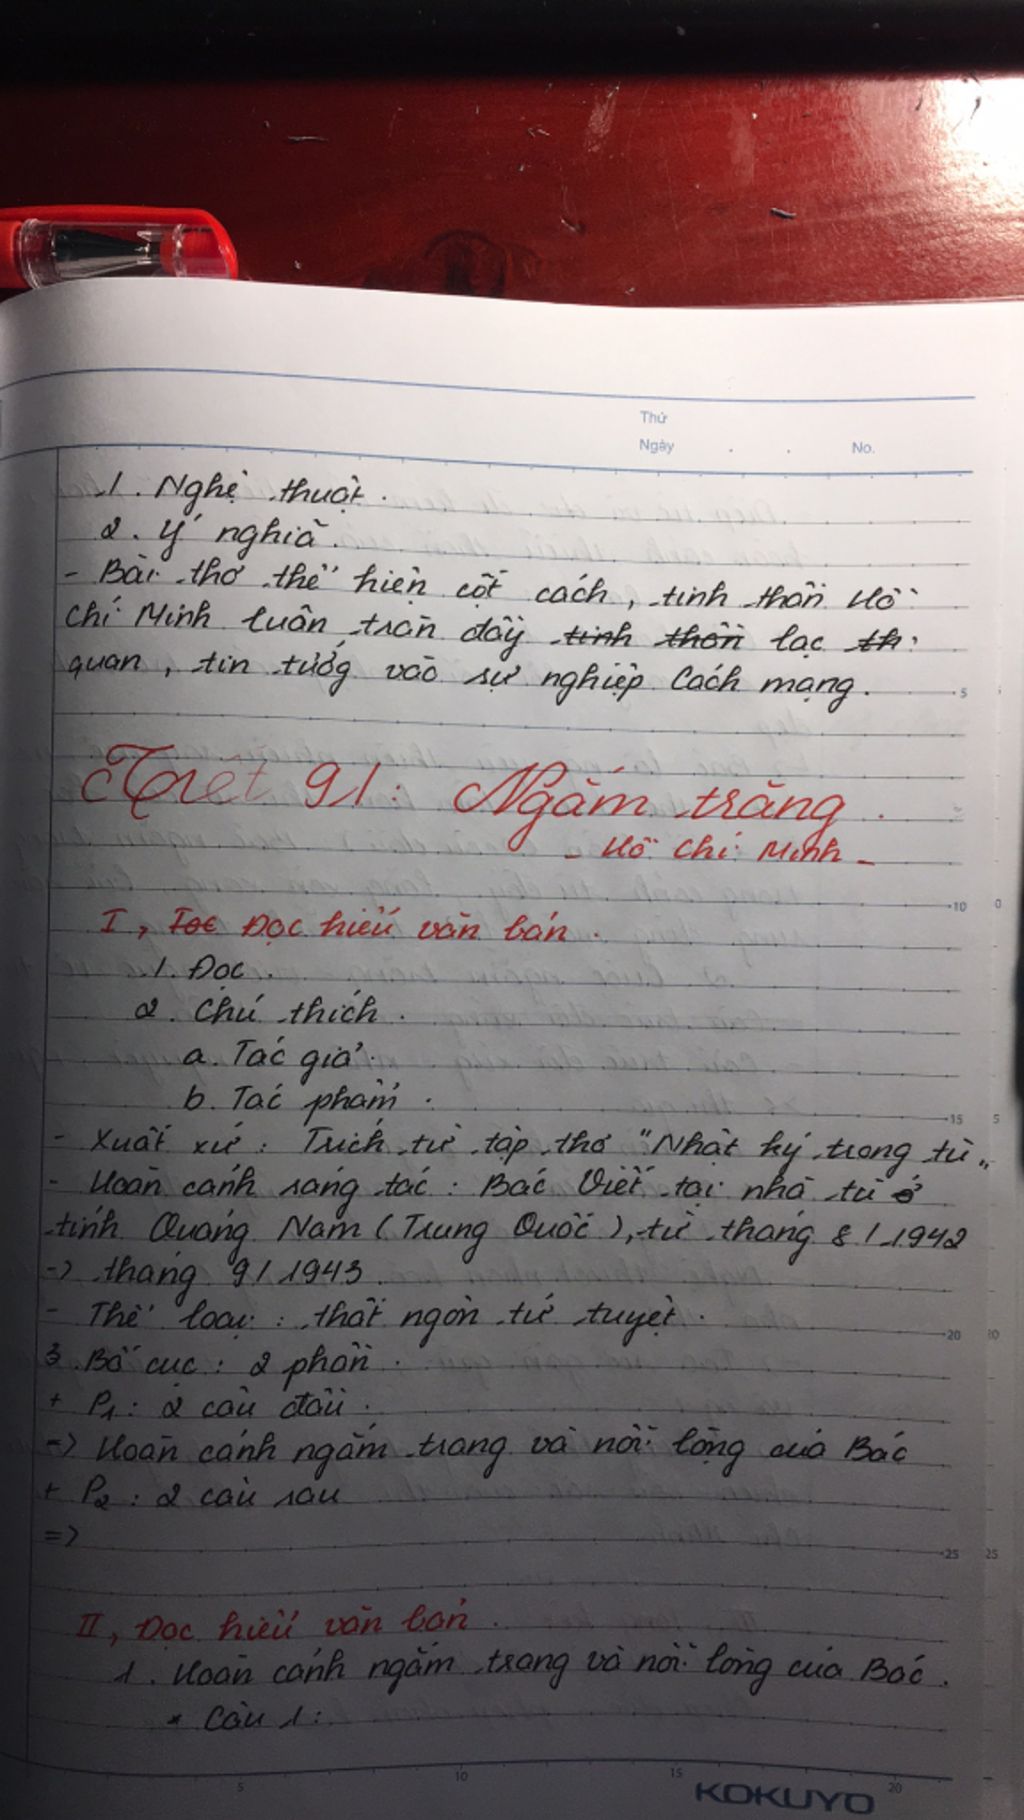 Thứ
Ngày . . No.
1. Nghệ thuật.
2. Ý nghĩa.
- Bài thơ thể hiện cốt cách, tinh thần Hồ
Chí Minh luân tràn đầy tinh thần lạc th
quan, tin tưởg vào sự nghiệp Cách mạng.
5
Tiết 91: Ngắm trăng.
- Hồ Chí Minh -
10 0
I, Toc Đọc hiểu văn bản.
1. Đọc.
2. Chú thích.
a. Tác giả.
b. Tác phẩm.
15 5
- Xuất xứ: Trích từ tập thơ "Nhật ký trong tù„
- Hoàn cảnh sáng tác: Bác Viết tại nhà tù ở
tỉnh Quảng Nam (Trung Quốc), từ tháng 8/1942
-> tháng 9/1943
- Thể loại: thất ngôn tứ tuyệt.
20 20
3. Bố cục: 2 phần.
+ P1: 2 câu đầu.
=> Hoàn cảnh ngắm trang và nỗi lòng của Bác
+ P2: 2 câu sau
=>
25 25
II, Đọc hiểu văn bản.
1. Hoàn cảnh ngắm trang và nỗi lòng của Bác.
* Câu 1:
5 10 15 20
KOKUYO